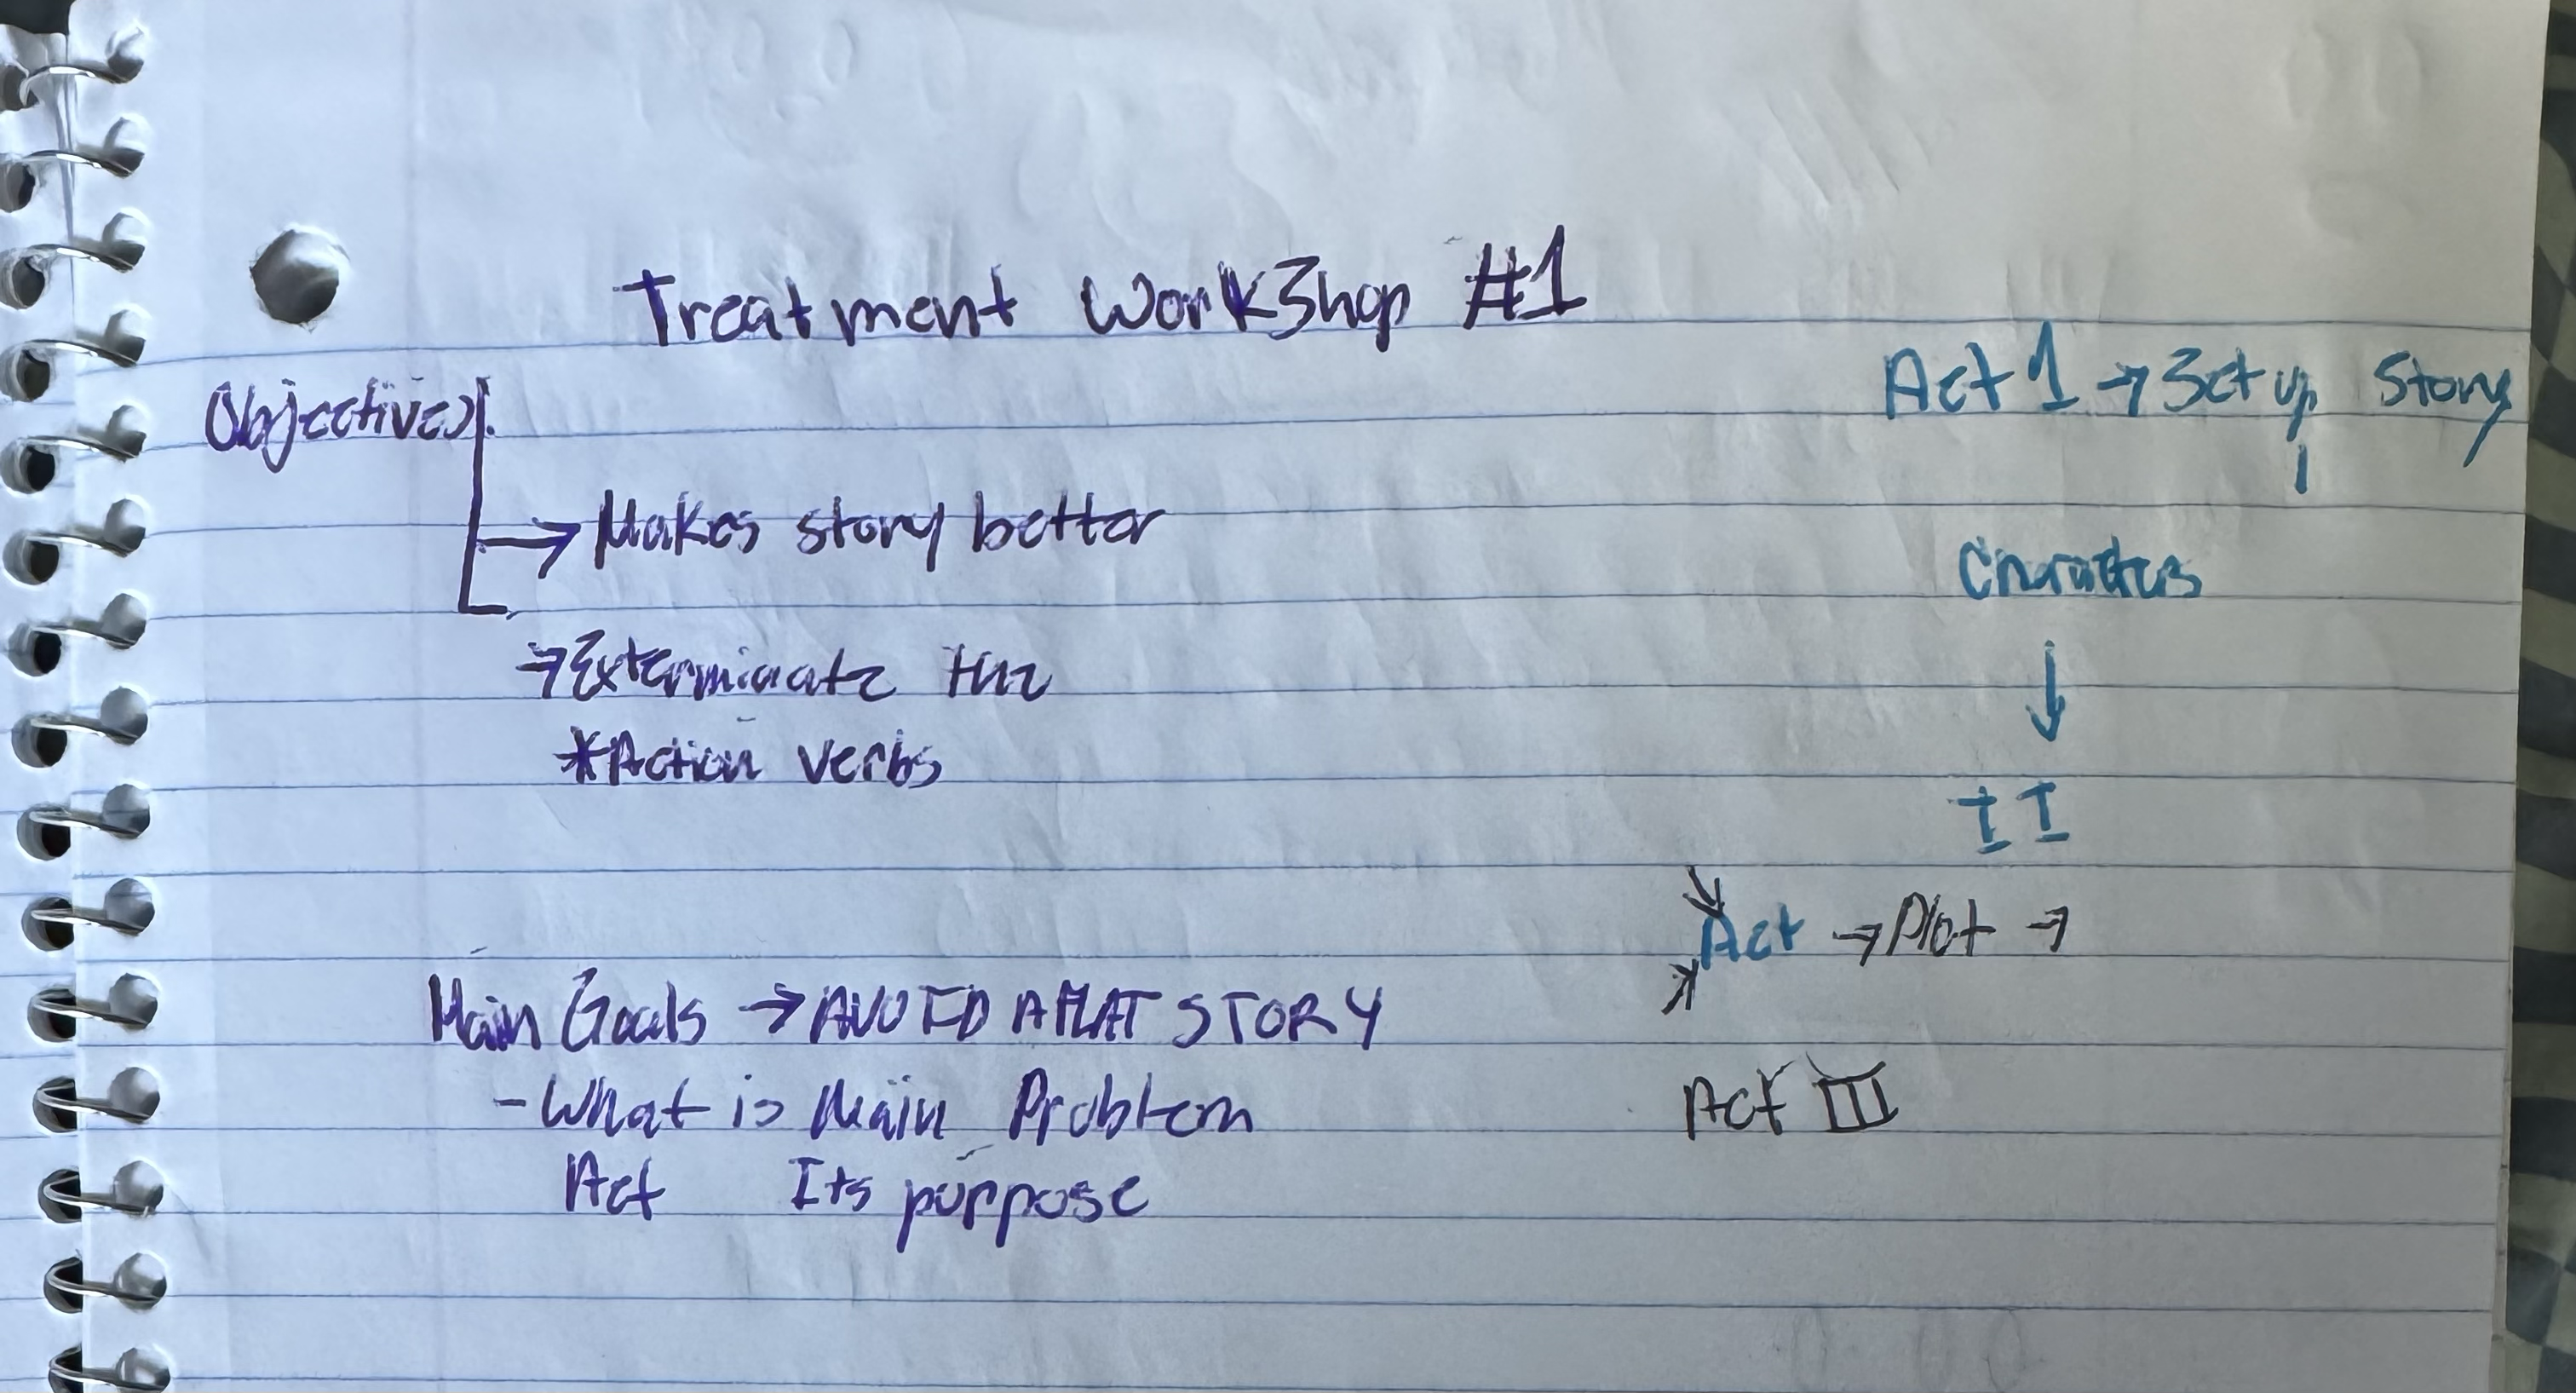 Treatment Workshop #1
Objectives
→ Makes story better
→ Exterminate the
* Action verbs
Main Goals → AVOID A FLAT STORY
- What is Main Problem
Act Its purpose
Act 1 → Set up Story
Characters
↓
II
Act → Plot →
Act III